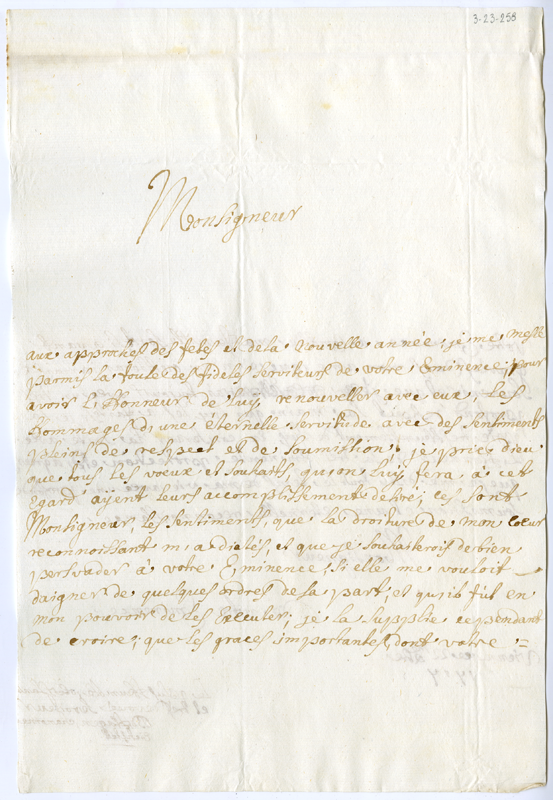 3-23-258
Monsigneur
aux approches des fetes et de la Nouvelle année, je me mesle
parmis la foule des fideles serviteurs de votre Eminence, pour
avoir l'Honneur de luy renouveller avec eux, Les
Hommages d'une éternelle servitude avec des sentiments
pleins de respect et de soumission, je prie dieu
que tous les voeux et souhaits, qu'on luy fera à cet
Egard ayent leurs accomplissement desiré; ces sont
Monsigneur, les sentiments, que la droiture de mon coeur
reconnoissant m'a dictés, et que je souhaiterois de bien
persvader à votre Eminence, si elle me vouloit
daigner de quelques ordres de sa part, et qu'il fût en
mon pouvoir de les Executer; je la supplie cependant
de croire, que les graces importantes, dont votre =